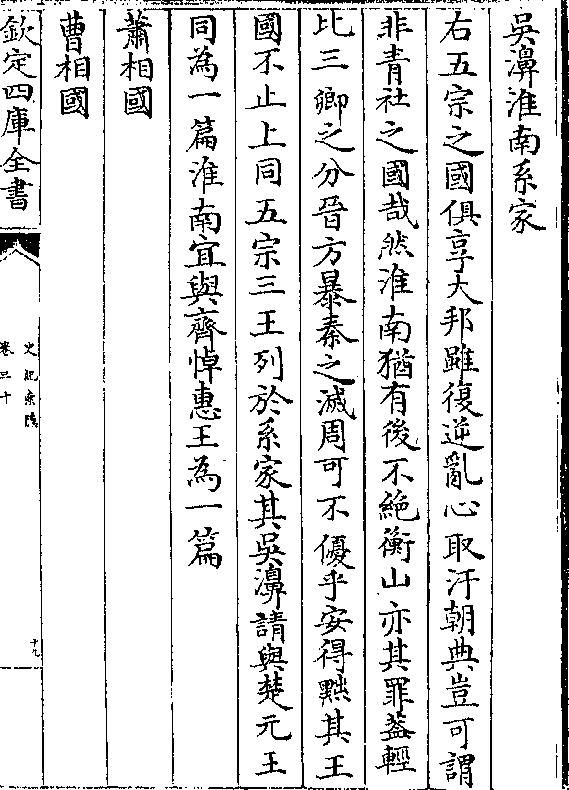 吳濞淮南系家
右五宗之國俱享大邦雖復逆亂心取汙朝典豈可謂
非青社之國哉然淮南猶有後不絶衡山亦其罪葢輕
比三卿之分晉方暴秦之滅周可不優乎安得黜其王
國不止上同五宗三王列於系家其吳濞請與楚元王
同為一篇淮南宜與齊悼惠王為一篇
蕭相國
曹相國
欽定四庫全書
史記索隱
卷三十
十九